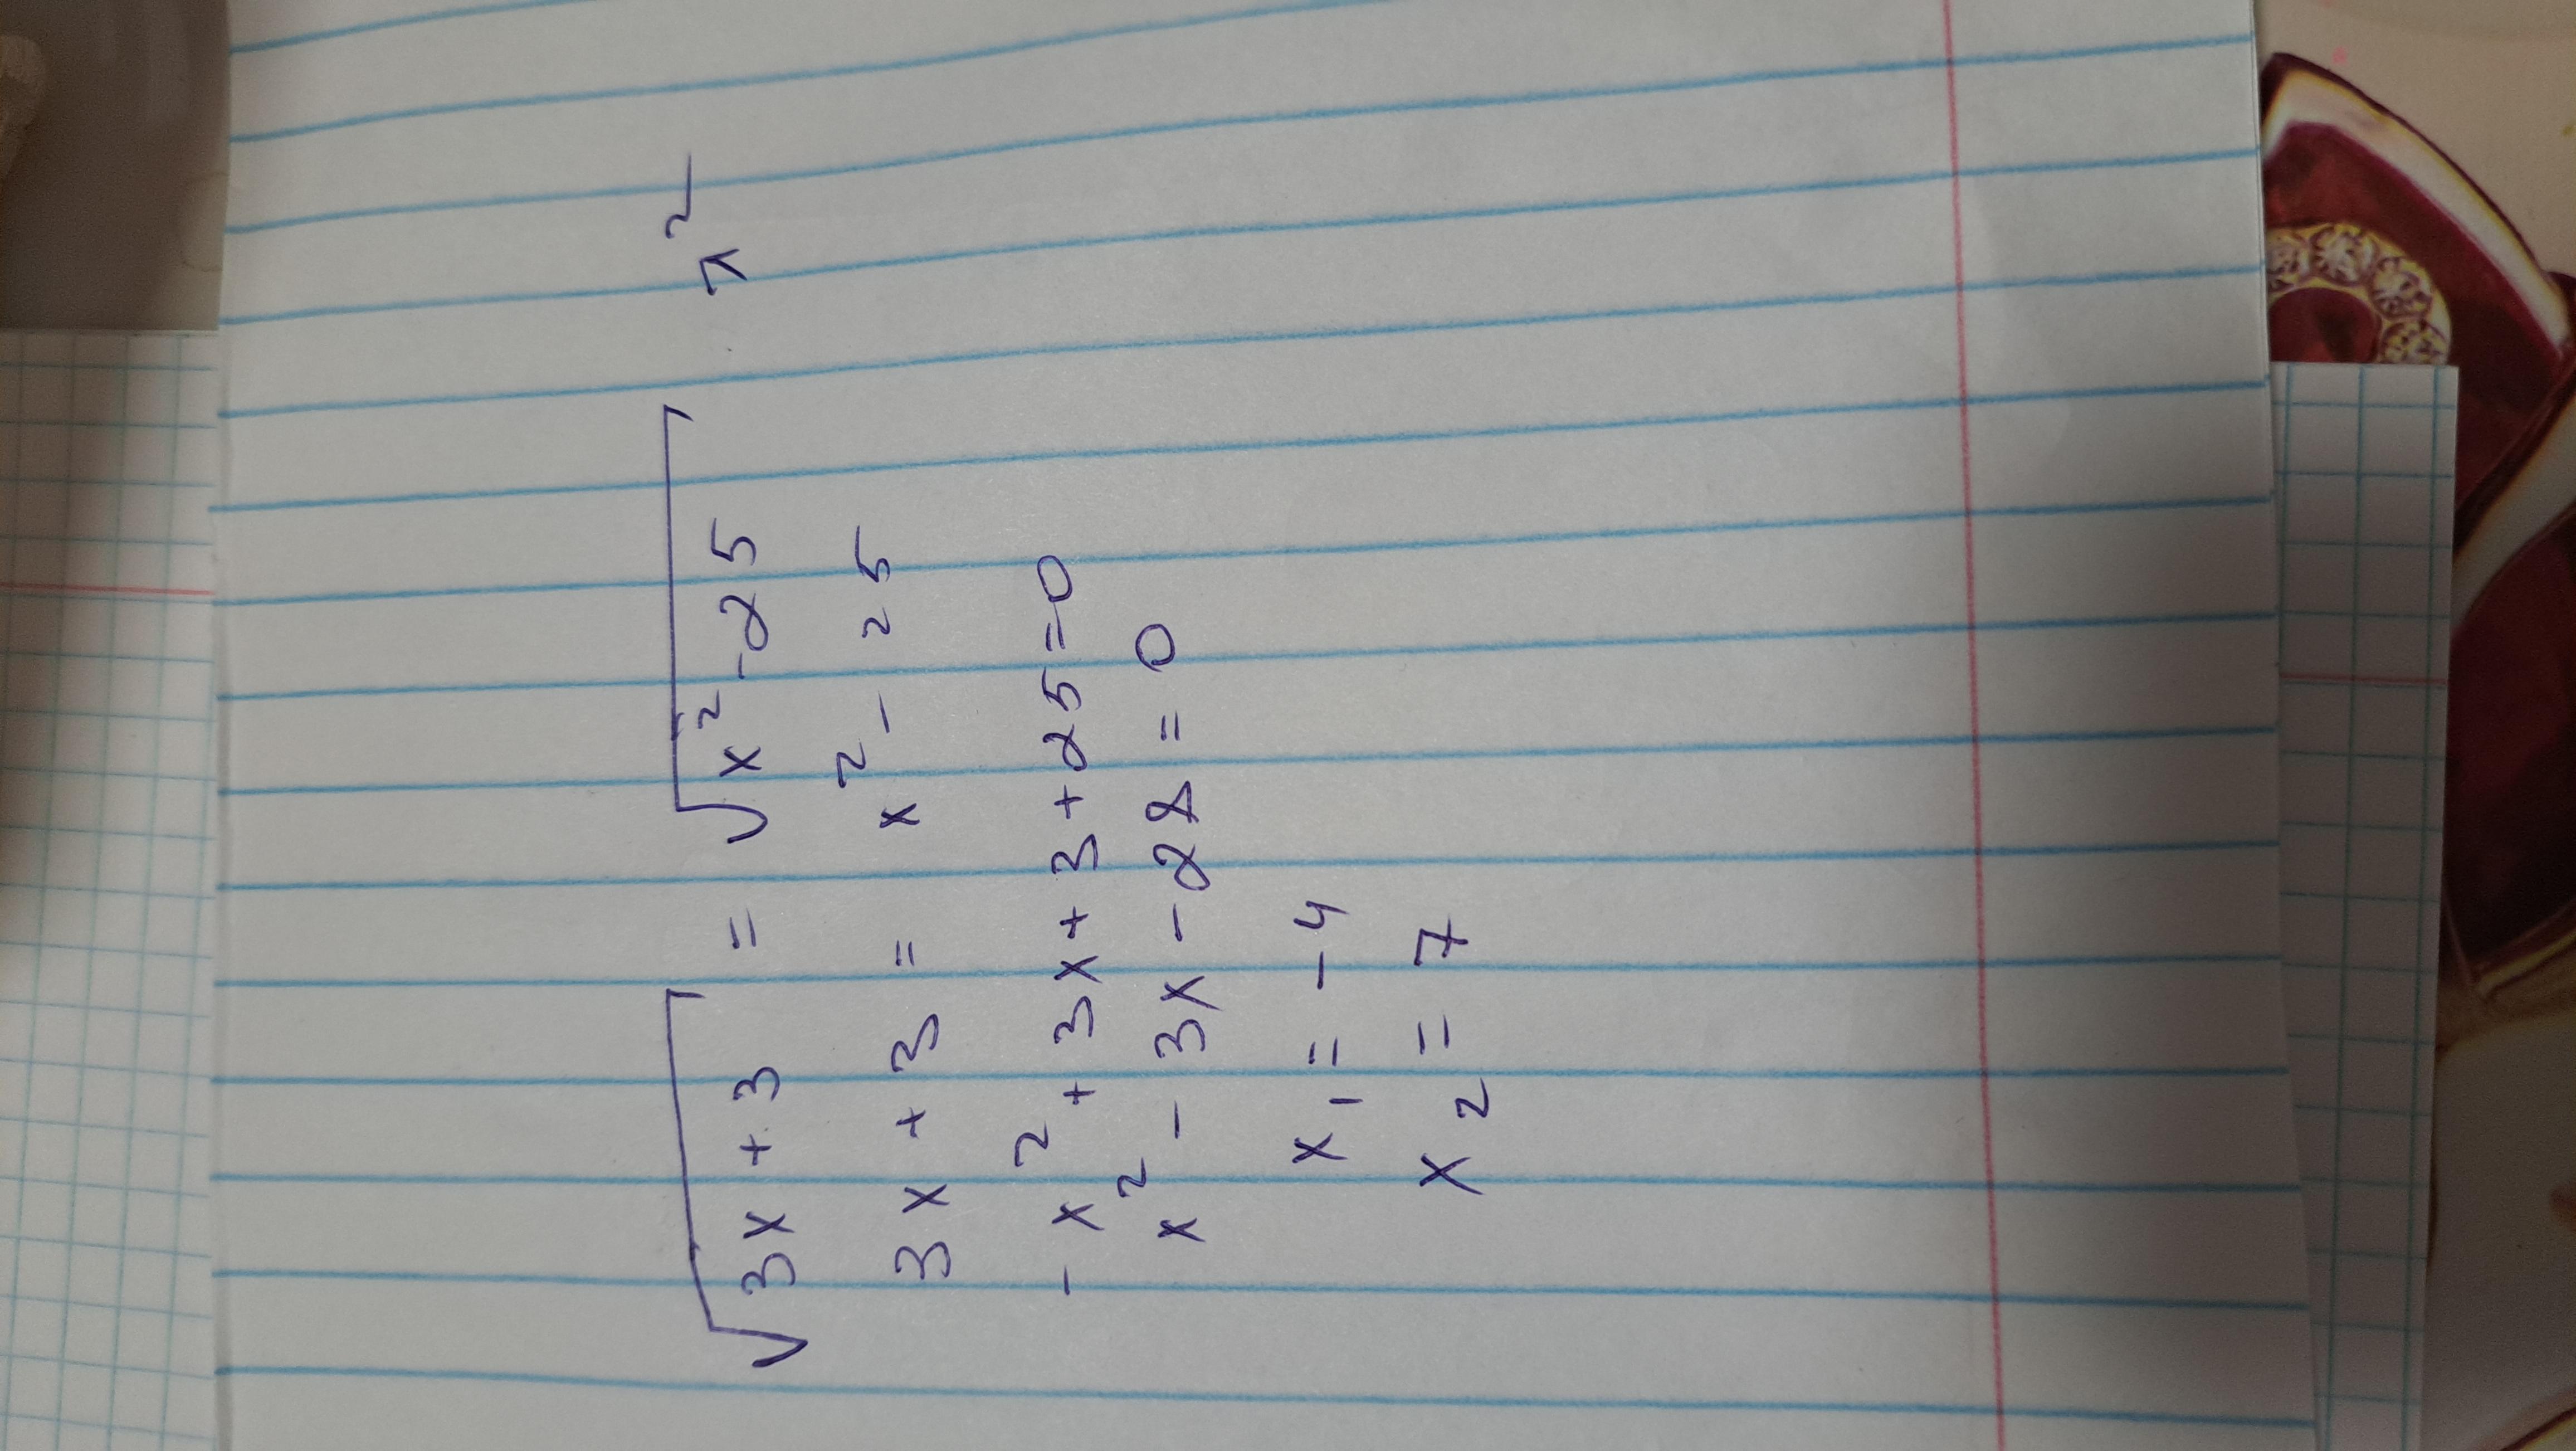 √3x + 3 = √x² - 25 ↗²
3x + 3 = x² - 25
- x² + 3x + 3 + 25 = 0
x² - 3x - 28 = 0
x₁ = - 4
x₂ = 7